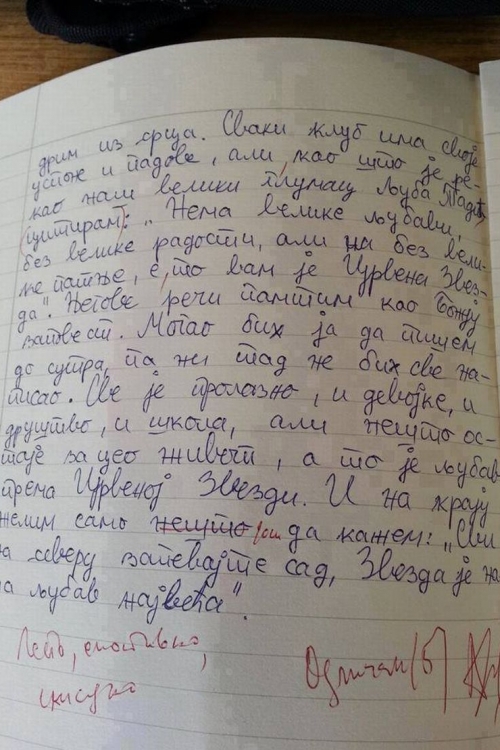 дрим из срца. Сваки клуб има своје
успоне и падове, али, као што је ре-
као наш велики глумац Љуба Тадић
(цитирам): „Нема велике љубави,
без велике радости, али ни без вели-
ке патње, е, то вам је Црвена Звез-
да". Његове речи памтим као Божју
заповест. Могао бих ја да пишем
до сутра, па ни тад не бих све на-
писао. Све је пролазно, и девојке, и
друштво, и школа, али нешто ос-
таје за цео живот, а то је љубав
према Црвеној Звезди. И на крају
желим само нешто још да кажем: „Сви
на северу запевајте сад, Звезда је на-
ша љубав највећа".
Лепо, емотивно,
искусно
Одличан (5)